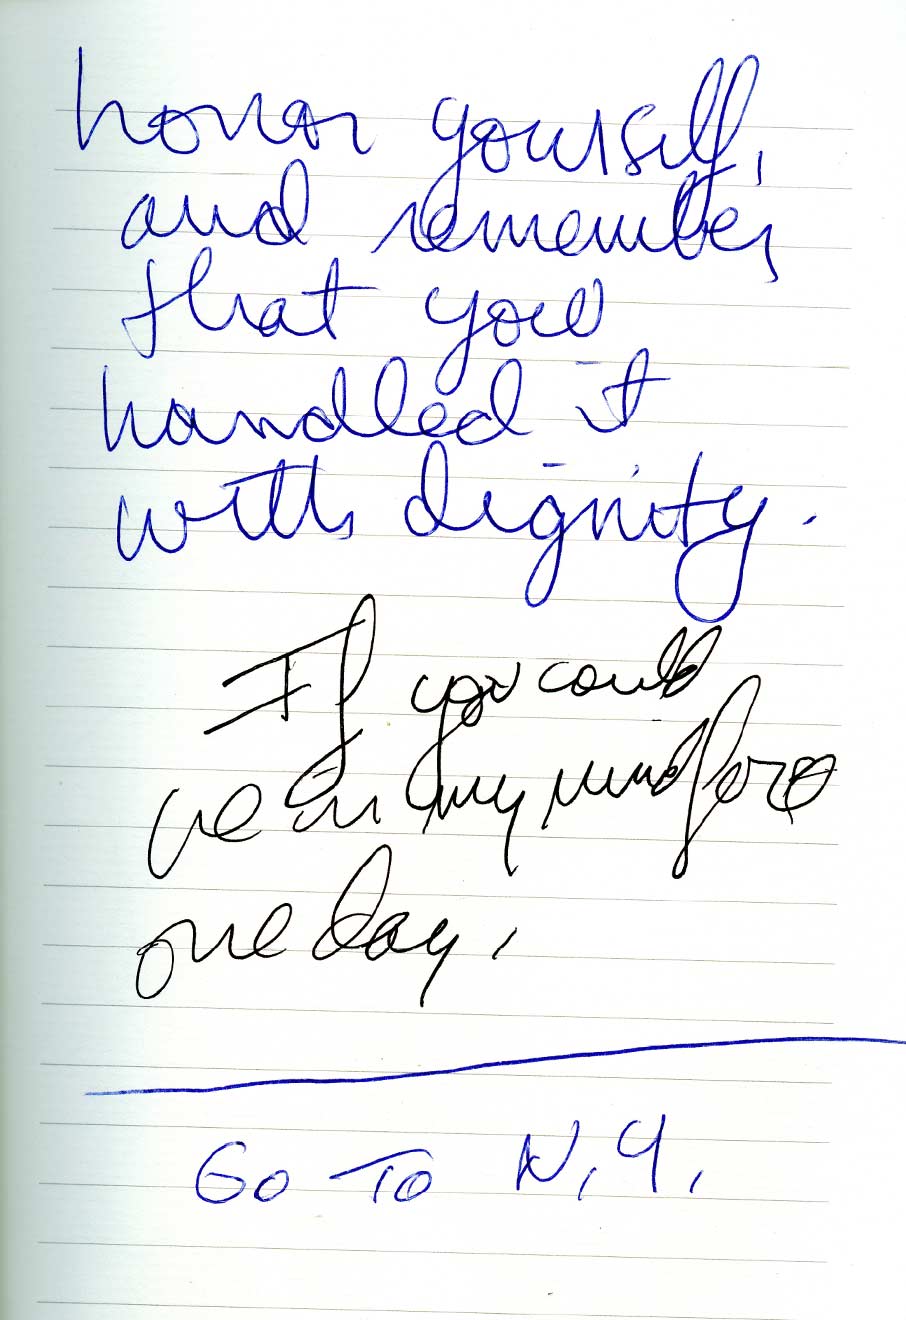 honor yourself,
and remember
that you
handled it
with dignity.
If you could
be in my mind for
one day.
Go To N.Y.